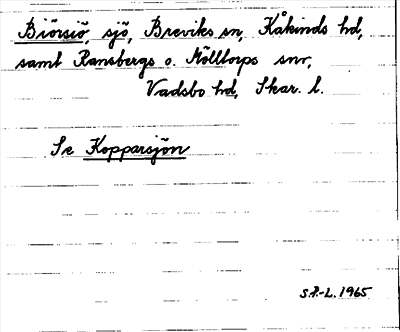 Biörsiö, sjö, Breviks sn, Kåkinds hd,
samt Ransbergs o. Mölltorps snr,
Vadsbo hd, Skar. l.
Se Kopparsjön
S.P.-L. 1965